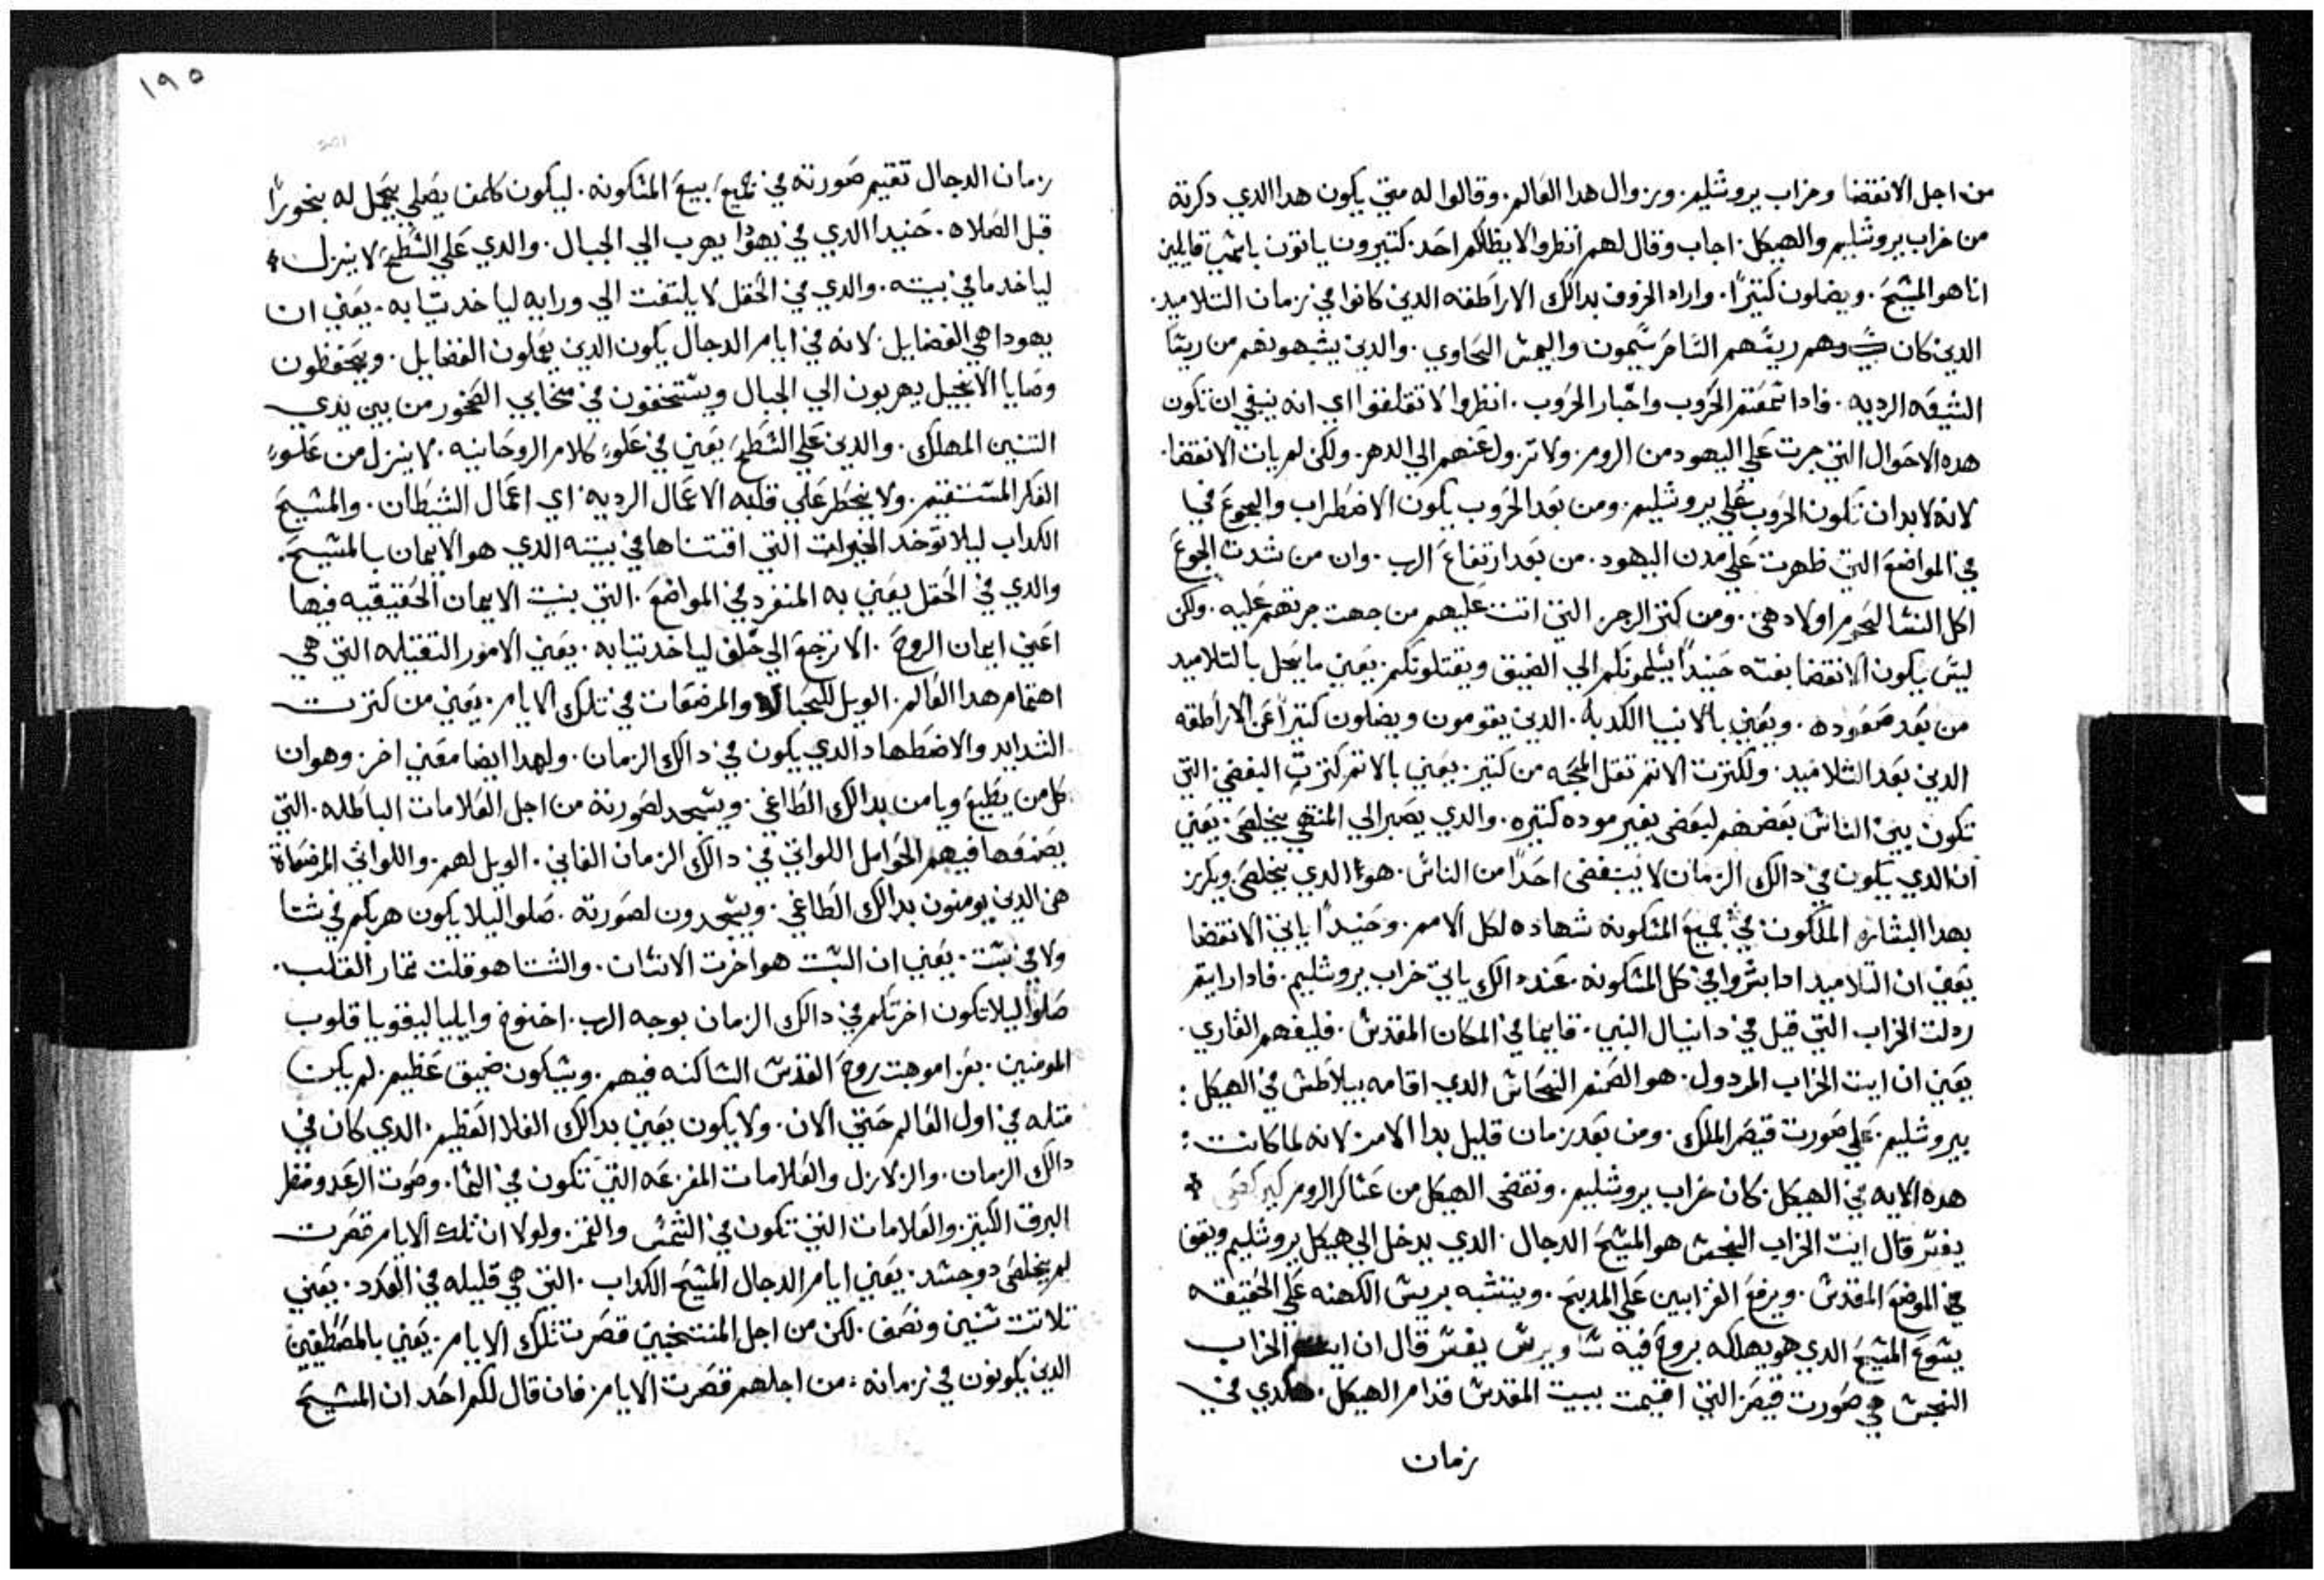 من اجل الانقضا وخراب يروشليم. وزوال هدا العالم. وقالوا له متي يكون هدا الدي دكرته
من خراب يروشليم والهيكل. اجاب وقال لهم انظروا لا يظلكم احد. كتيرون ياتون باسمي قايلين
انا هو المسيح. ويضلون كتيرًا. واراد الرووف بدالك الاراطقه الدين كانوا في زمان التلاميد.
الدين كان ريسهم الساحر سيمون واليمس السحاوي. والدين يشبهونهم من ريسا
الشيعه الرديه. فادا سمعتم الحروب واخبار الحروب. انظروا لا تقلقوا اي انه ينبغي ان تكون
هده الاحوال التي جرت علي اليهود من الروم. ولا تزول عنهم الي الدهر. ولكن لم يات الانقضا.
لانه لابد ان تكون الحروب علي يروشليم. ومن بعد الحروب يكون الاضطراب والجوع في
في المواضع التي ظهرت علي مدن اليهود. من بعد ارتفاع الرب. وان من شدت الجوع
اكل النسا لحوم اولادهن. ومن كتر الرجز التي اتت عليهم من جهت جرتهم عليه. ولكن
ليس يكون الانقضا بغته حنيدًا يسلمونكم الي الضيق ويقتلونكم. يعني ما يحل بالتلاميد
من بعد صعوده. ويعني بالانبيا الكدبه. الدين يقومون ويضلون كتيرًا عن الاراطقه
الدين بعد التلاميد. ولكترت الاتم تقل المحبه من كتير. يعني بالاتم كترت البغض. التي
تكون بين الناس بعضهم لبعض بغير موده كتيره. والدي يصبر الي المنتهي يخلص. يعني
ان الدي يكون في دالك الزمان لا يبغض احدًا من الناس. هو الدي يخلص ويكرز
بهدا البشاره الملكوت في جميع المسكونه شهاده لكل الامم. وحنيدًا ياتي الانقضا
يعني ان التلاميد ادا بشروا في كل المسكونه. عند دالك ياتي خراب يروشليم. فادا رايتم
ردلت الخراب التي قيل في دانيال النبي. قايما في المكان المقدس. فليفهم القاري.
يعني ان ايت الخراب المردول. هو الصنم النحاس الدي اقامه بيلاطس في الهيكل:
بيروشليم. علي صورت قيصر الملك. ومن بعد زمان قليل بدا الامر. لانه لما كانت:
هده الايه في الهيكل. كان خراب يروشليم. ونقض الهيكل من عساكر الروم
يفسر قال ايت الخراب النجس هو المسيح الدجال. الدي يدخل الي هيكل يروشليم ويقف
في الموضع المقدس. ويرفع القرابين علي المدبح. ويتشبه بريس الكهنه علي الحقيقه
يسوع المسيح الدي هو يهلكه بروح فيه ساويرس يفسر قال ان ايت الخراب
النجس هي صورت قيصر التي اقيمت ببيت المقدس قدام الهيكل. هكدي في
زمان
١٩٥
زمان الدجال تقيم صورته في جميع بيع المسكونه. ليكون كلمن يصلي يجعل له بخورًا
قبل الصلاه. حنيدا الدي في يهودا يهرب الي الجبال. والدي علي السطح لا ينزل
لياخد ما في بيته. والدي في الحقل لا يلتفت الي ورايه لياخد تيابه. يعني ان
يهودا هي الفضايل. لانه في ايام الدجال يكون الدين يعملون الفضايل. ويحفظون
وصايا الانجيل يهربون الي الجبال ويستخفون في مخابي الصخور من بين يدي
التنين المهلك. والدين علي السطح يعني في علو كلام الروحانيه. لا ينزل من علو
الفكر المستقيم. ولا يخطر علي قلبه الاعمال الرديه. اي اعمال الشيطان. والمسيح
الكداب ليلا توخد الخيرات التي اقتناها في بيته الدي هو الايمان بالمسيح.
والدي في الحقل يعني به المنفرد في المواضع. التي بنيت الايمان الحقيقيه فيها
اعني ايمان الروح. الا ترجع الي خلف لياخد تيابه. يعني الامور التقيله التي هي
اهتمام هدا العالم. الويل للحبالا والمرضعات في تلك الايام. يعني من كترت
الشدايد والاضطهاد الدي يكون في دالك الزمان. ولهدا ايضا معني اخر. وهو ان
كل من يطيع ويامن بدالك الطاغي. ويسجد لصورته من اجل العلامات الباطله. التي
يصنعها فيهم الحوامل اللواتي في دالك الزمان الفاني. الويل لهم. واللواتي المرضعاة
هن الدين يومنون بدالك الطاغي. ويسجدون لصورته. صلوا ليلا يكون هربكم في شتا
ولا في سبت. يعني ان السبت هو اخرت الانسان. والشتا هو قلت تمار القلب.
صلوا ليلا تكون اخرتكم في دالك الزمان بوجه الرب. اخنوخ وايليا ليقويا قلوب
المومنين. بعزا موهبت روح القدس الساكنه فيهم. وسيكون ضيق عظيم. لم يكن
متله في اول العالم حتي الان. ولا يكون يعني بدالك الغلا العظيم. الدي كان في
دالك الزمان. والزلازل والعلامات المفزعه التي تكون في السما. وصوت الرعد ومنظر
البرق الكتير. والعلامات التي تكون في الشمس والقمر. ولولا ان تلك الايام قصرت
لم يخلص دو جسد. يعني ايام الدجال المسيح الكداب. التي هي قليله في العدد. يعني
تلاتت سنين ونصف. لكن من اجل المنتخبين قصرت تلك الايام. يعني بالمصطفين
الدين يكونون في زمانه: من اجلهم قصرت الايام. فان قال لكم احد ان المسيح